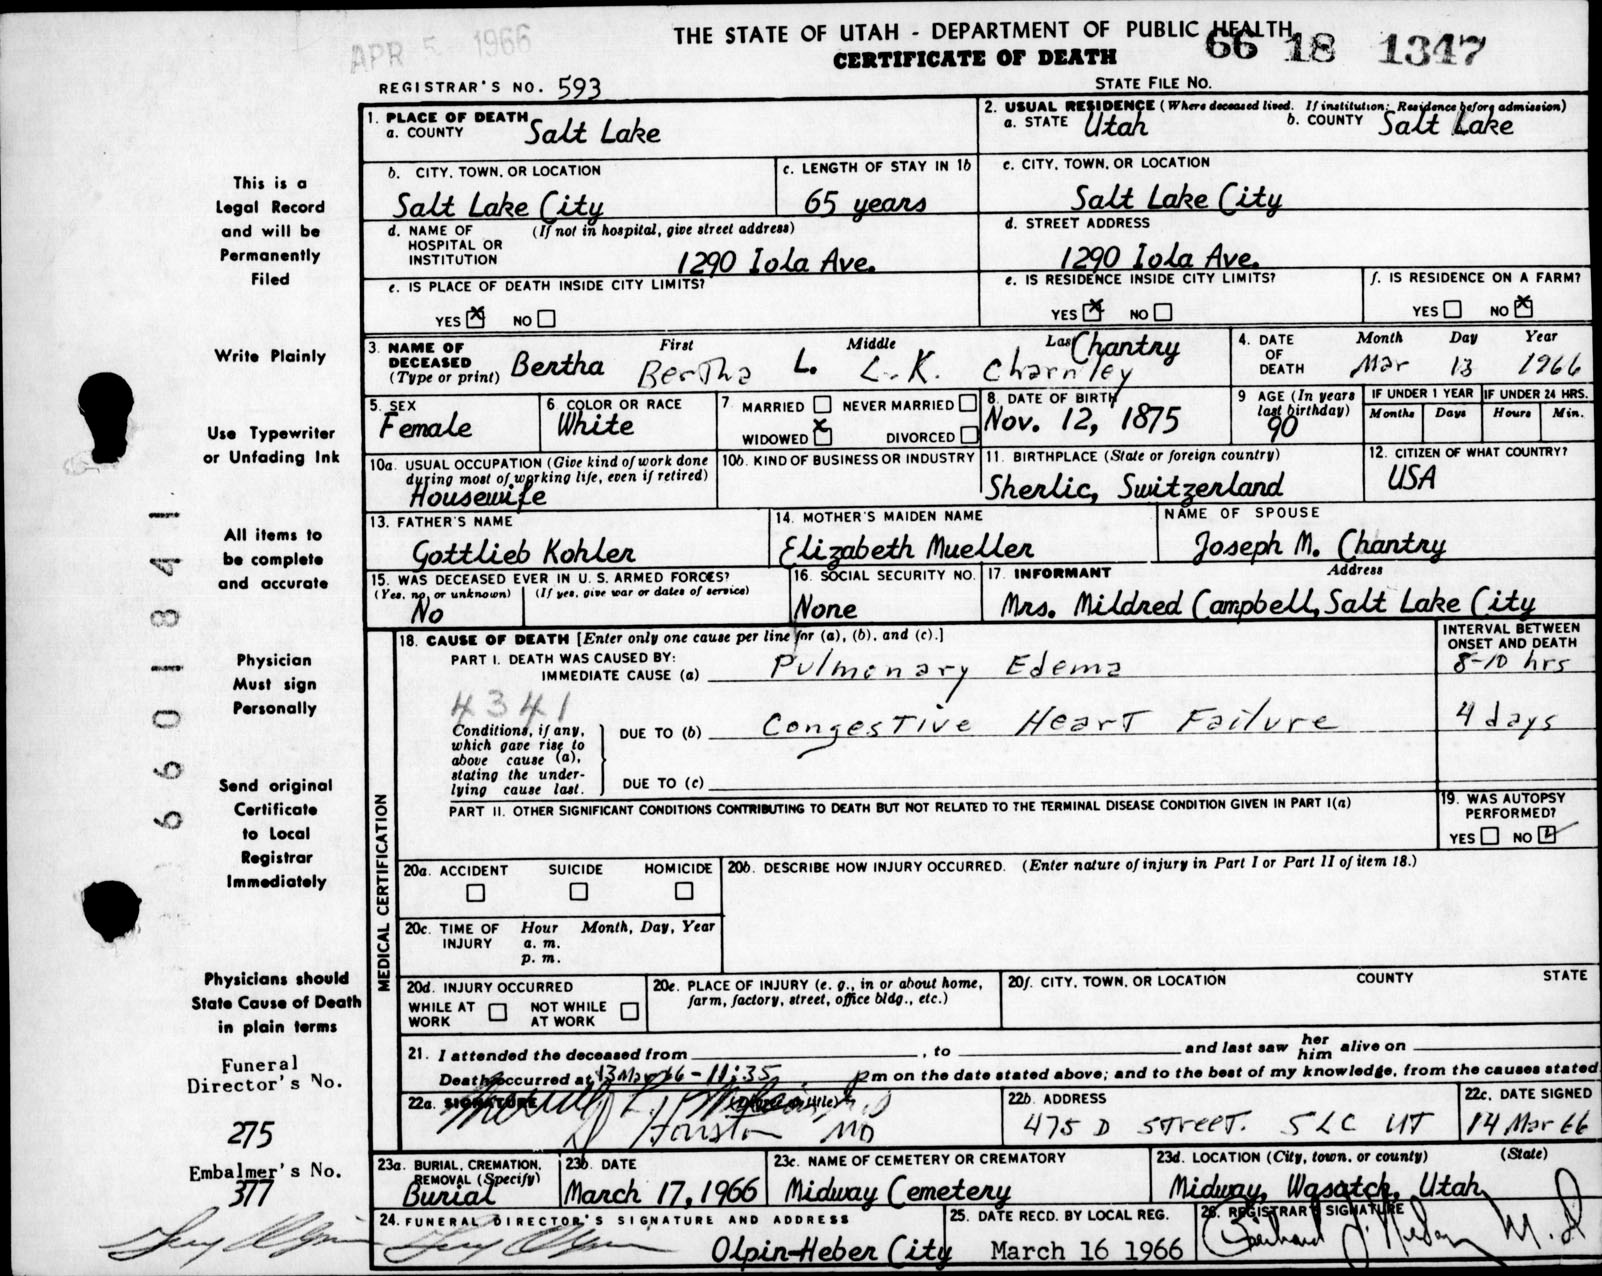 APR 5 1966
THE STATE OF UTAH - DEPARTMENT OF PUBLIC HEALTH
CERTIFICATE OF DEATH
66 18 1347
REGISTRAR'S NO. 593
STATE FILE NO.
1. PLACE OF DEATH
a. COUNTY Salt Lake
2. USUAL RESIDENCE (Where deceased lived. If institution: Residence before admission)
a. STATE Utah b. COUNTY Salt Lake
b. CITY, TOWN, OR LOCATION
Salt Lake City
c. LENGTH OF STAY IN 1b
65 years
c. CITY, TOWN, OR LOCATION
Salt Lake City
d. NAME OF HOSPITAL OR INSTITUTION (If not in hospital, give street address)
1290 Iola Ave.
d. STREET ADDRESS
1290 Iola Ave.
e. IS PLACE OF DEATH INSIDE CITY LIMITS?
YES X NO
e. IS RESIDENCE INSIDE CITY LIMITS?
YES X NO
f. IS RESIDENCE ON A FARM?
YES NO X
3. NAME OF DECEASED (Type or print)
First Middle Last
Bertha L. Chantry
Bertha L.K. Charnley
4. DATE OF DEATH
Month Day Year
Mar 13 1966
5. SEX
Female
6. COLOR OR RACE
White
7. MARRIED NEVER MARRIED
WIDOWED X DIVORCED
8. DATE OF BIRTH
Nov. 12, 1875
9. AGE (In years last birthday)
90
IF UNDER 1 YEAR
Months Days
IF UNDER 24 HRS.
Hours Min.
10a. USUAL OCCUPATION (Give kind of work done during most of working life, even if retired)
Housewife
10b. KIND OF BUSINESS OR INDUSTRY
11. BIRTHPLACE (State or foreign country)
Sherlic, Switzerland
12. CITIZEN OF WHAT COUNTRY?
USA
13. FATHER'S NAME
Gottlieb Kohler
14. MOTHER'S MAIDEN NAME
Elizabeth Mueller
NAME OF SPOUSE
Joseph M. Chantry
15. WAS DECEASED EVER IN U. S. ARMED FORCES?
(Yes, no, or unknown) (If yes, give war or dates of service)
No
16. SOCIAL SECURITY NO.
None
17. INFORMANT Address
Mrs. Mildred Campbell, Salt Lake City
MEDICAL CERTIFICATION
18. CAUSE OF DEATH [Enter only one cause per line for (a), (b), and (c).]
INTERVAL BETWEEN ONSET AND DEATH
PART I. DEATH WAS CAUSED BY:
IMMEDIATE CAUSE (a) Pulmonary Edema 8-10 hrs
4341
Conditions, if any, which gave rise to above cause (a), stating the underlying cause last.
DUE TO (b) Congestive Heart Failure 4 days
DUE TO (c)
PART II. OTHER SIGNIFICANT CONDITIONS CONTRIBUTING TO DEATH BUT NOT RELATED TO THE TERMINAL DISEASE CONDITION GIVEN IN PART I(a)
19. WAS AUTOPSY PERFORMED?
YES NO
20a. ACCIDENT SUICIDE HOMICIDE
20b. DESCRIBE HOW INJURY OCCURRED. (Enter nature of injury in Part I or Part II of item 18.)
20c. TIME OF INJURY Hour Month, Day, Year
a. m.
p. m.
20d. INJURY OCCURRED
WHILE AT WORK NOT WHILE AT WORK
20e. PLACE OF INJURY (e. g., in or about home, farm, factory, street, office bldg., etc.)
20f. CITY, TOWN, OR LOCATION COUNTY STATE
21. I attended the deceased from , to and last saw her him alive on
Death occurred at 13 Mar 66 - 11:35 pm on the date stated above; and to the best of my knowledge, from the causes stated
22a. SIGNATURE (Degree or title)
MD
22b. ADDRESS
475 D Street. SLC UT
22c. DATE SIGNED
14 Mar 66
23a. BURIAL, CREMATION, REMOVAL (Specify)
Burial
23b. DATE
March 17, 1966
23c. NAME OF CEMETERY OR CREMATORY
Midway Cemetery
23d. LOCATION (City, town, or county) (State)
Midway, Wasatch, Utah
24. FUNERAL DIRECTOR'S SIGNATURE AND ADDRESS
Olpin-Heber City
25. DATE RECD. BY LOCAL REG.
March 16 1966
26. REGISTRAR'S SIGNATURE
M.D
This is a
Legal Record
and will be
Permanently
Filed
Write Plainly
Use Typewriter
or Unfading Ink
All items to
be complete
and accurate
Physician
Must sign
Personally
Send original
Certificate
to Local
Registrar
Immediately
Physicians should
State Cause of Death
in plain terms
Funeral
Director's No.
275
Embalmer's No.
377
66018411